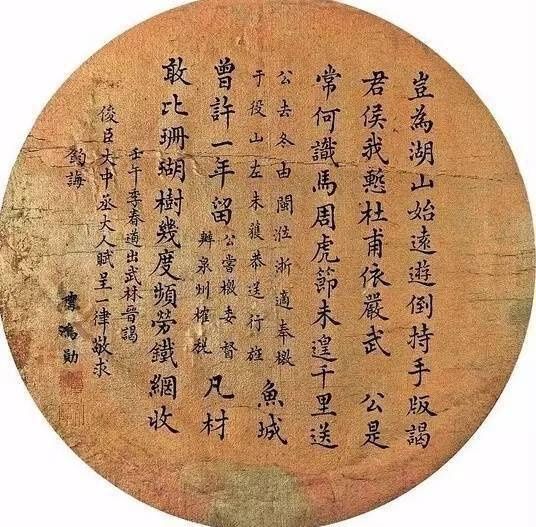 豈為湖山始遠遊倒持手版謁
君侯我慙杜甫依嚴武 公是
常何識馬周虎節未遑千里送
公去冬由閩涖浙適奉檄
于役山左未獲恭送行旌
魚城
曾許一年留
公嘗檄委督
辦泉州榷稅
凡材
敢比珊瑚樹幾度頻勞鐵網收
壬午季春道出武林晉謁
俊臣大中丞大人賦呈一律敬求
誨
鴻勛